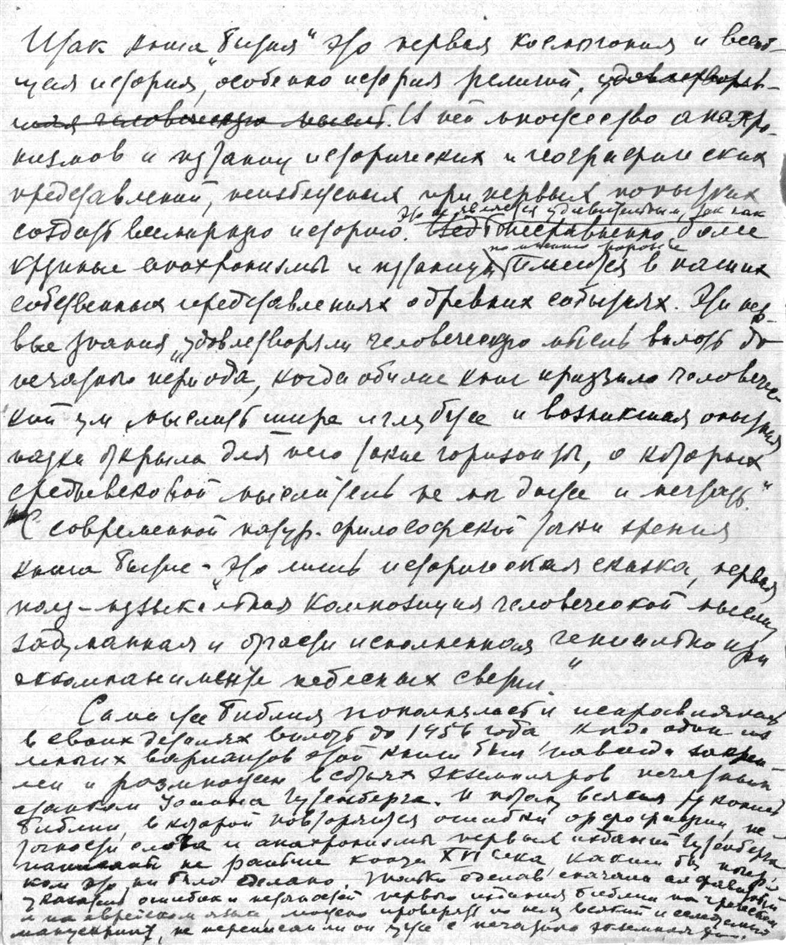 Итак книга "Бытия" это первая космогония и всеоб-
щая история, особенно история религий, удовлетворяв-
шая человеческую мысль. В ней множество анахро-
низмов и путаниц исторических и географических
представлений, неизбежных при первых попытках
это не является удивительным, так как
создать всемирную историю. Ведь несравненно более
по мнению
крупные анахронизмы и путаницы имеются в наших
собственных представлениях о древних событиях. Эти пер-
вые знания "удовлетворяли человеческую мысль вплоть до
печатного периода, когда обилие книг приучило человечес-
кий ум мыслить шире и глубже и возникшая опытная
наука открыла для него такие горизонты, о которых
средневековой мыслитель не мог даже и мечтать."
"С современной натур-философской точки зрения
книга Бытие - это лишь историческая сказка, первая
музыкальная композиция человеческой мысли,
задуманная и отчасти исполненная гениально при
аккомпанименте небесных сфер."
Сама же Библия пополнялась и исправлялась
в своих деталях вплоть до 1456 года когда один из
многих вариантов этой книги был навсегда закреп-
лен и размножен в сотнях экземпляров печатным
станком Иоанна Гутенберга. И потому всякая рукопись
Библии, в которой повторяются ошибки орфографии, не-
точности слова и анахронизмы первых изданий Гутенберга
написана не раньше конца XV века каким бы почер-
ком это ни было сделано. Только сделав сначала алфавитный
указатель ошибок и неточностей первого издания Библии на греческом
и на еврейском языке, можно проверять по нему всякий
манускрипт, не переписан ли он уже с печатного экземпляра